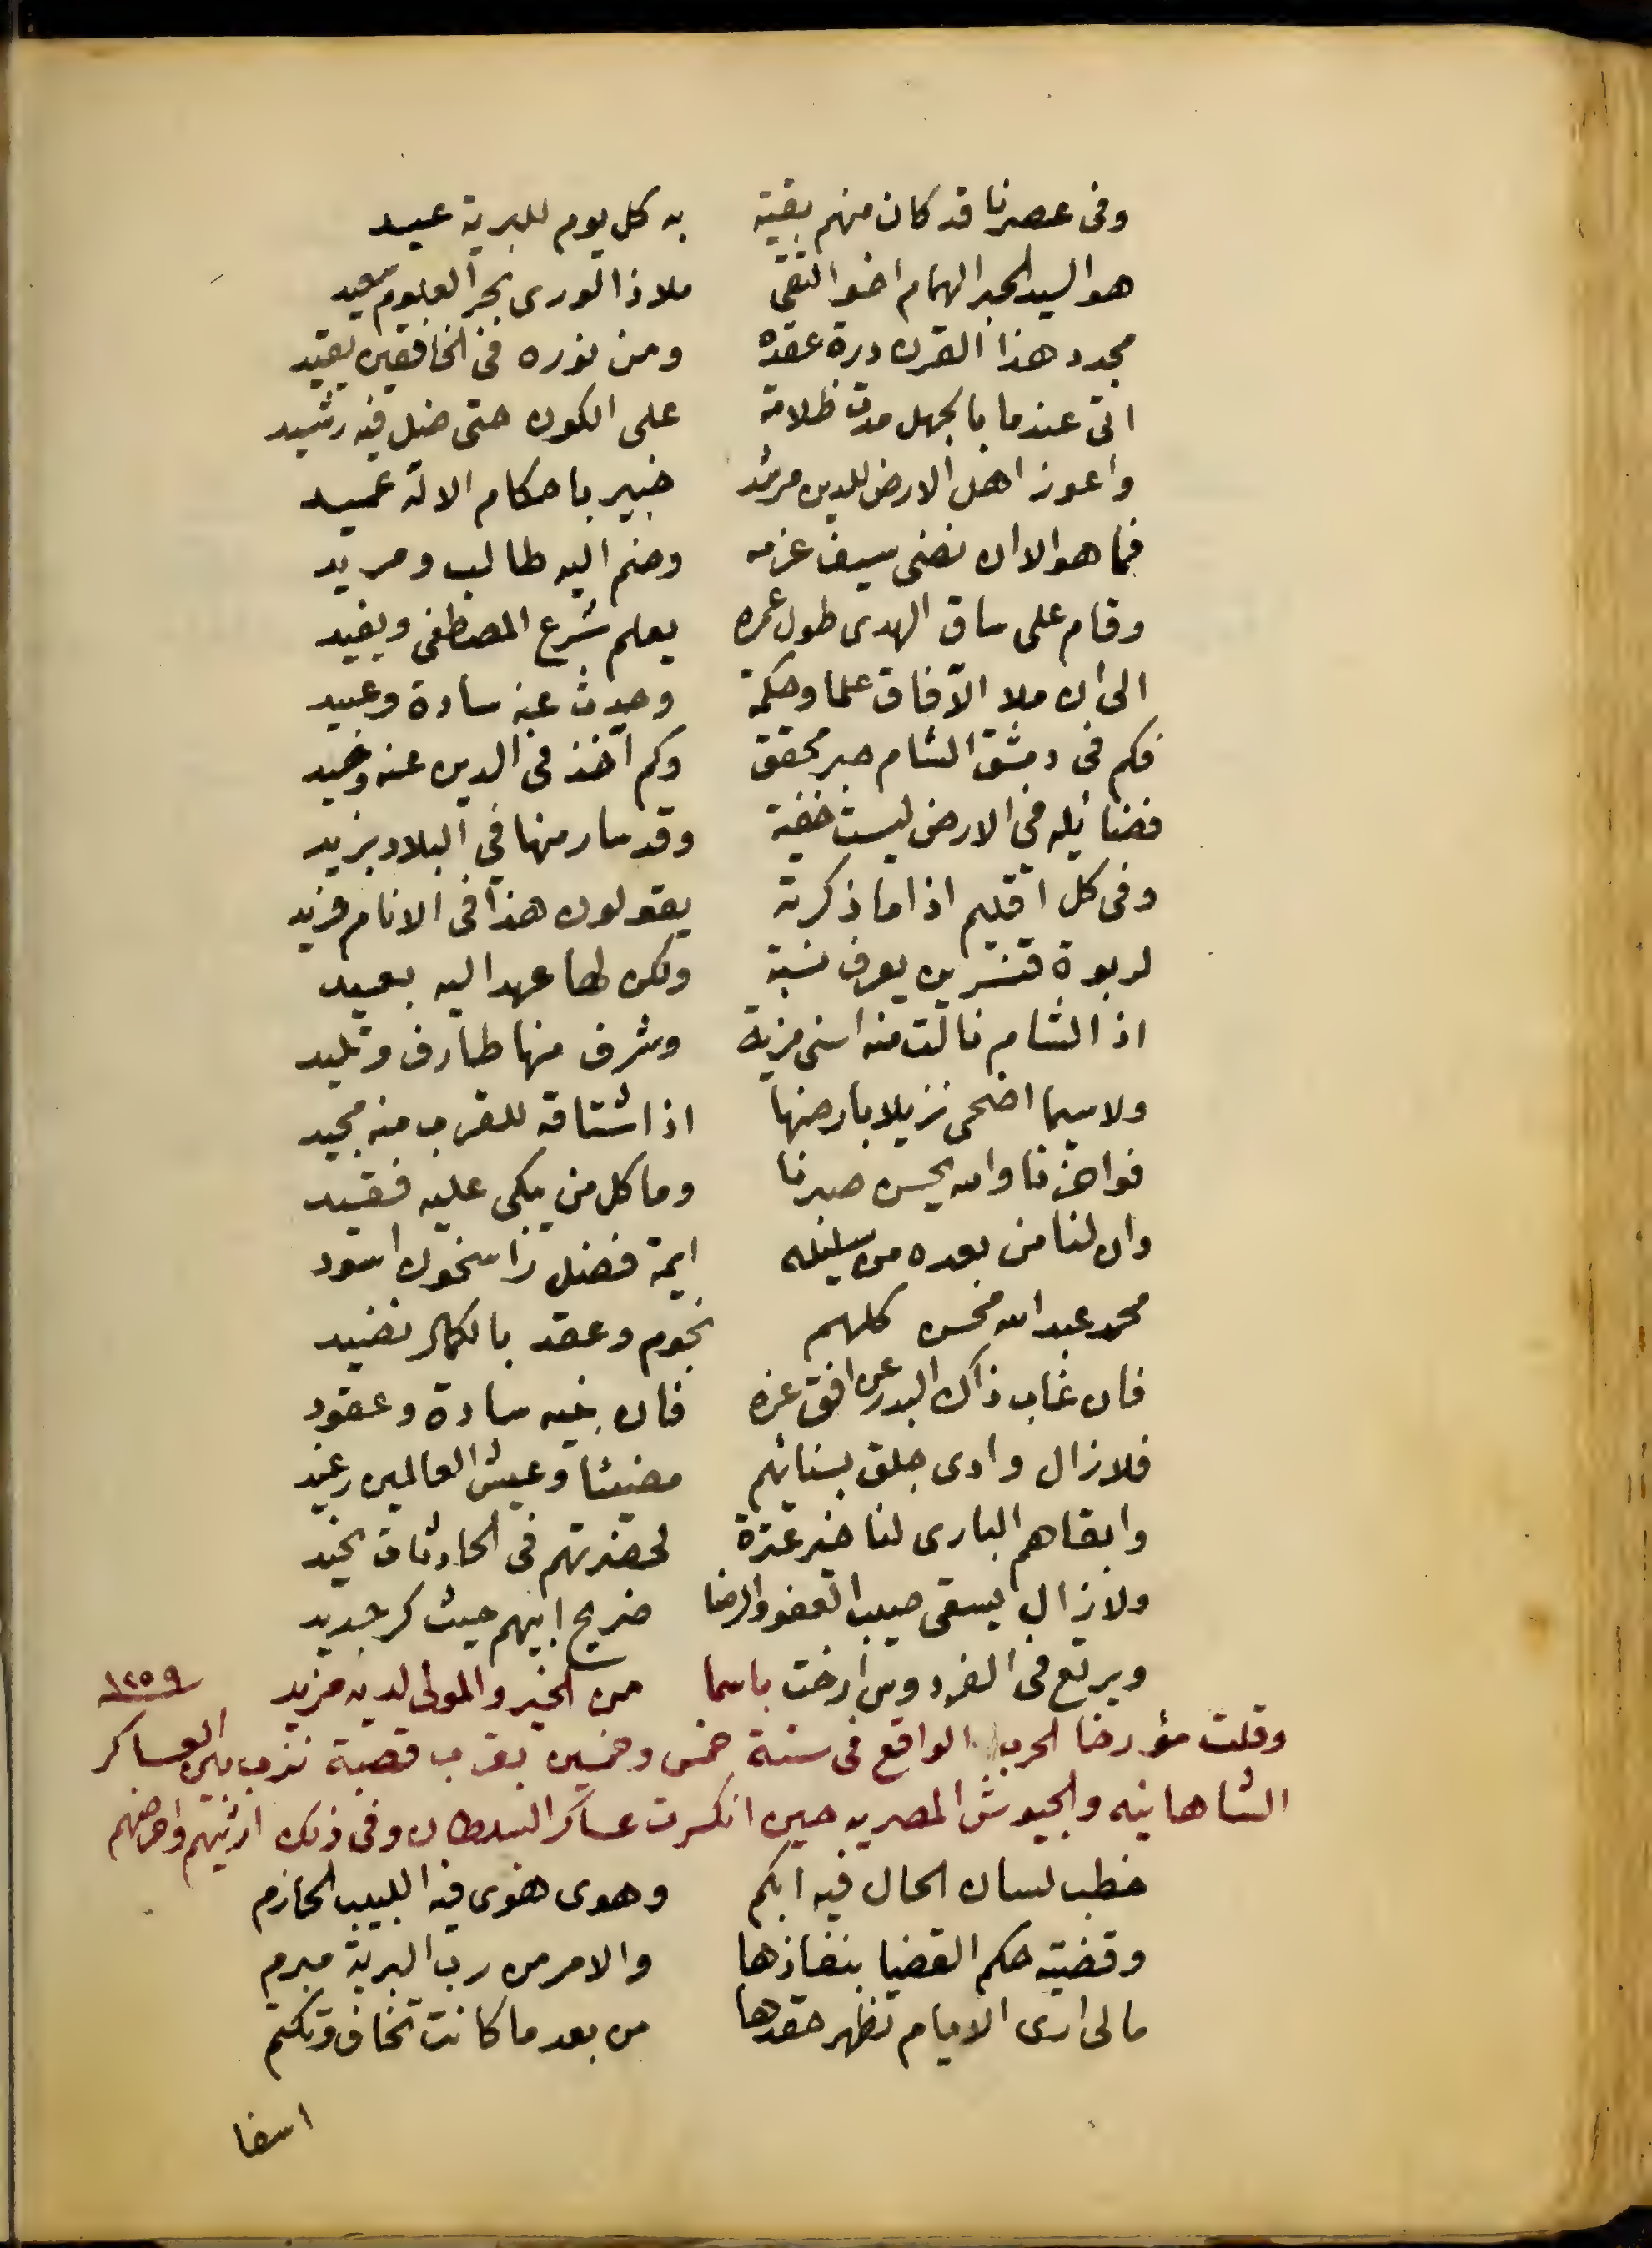 وفى عصرنا قد كان منهم بقية به كل يوم للبرية عيد
هو السيد الحبر الهمام اخو التقى ملاذ الورى بحر العلوم سعيد
مجدد هذا القرن درة عقده ومن نوره فى الخافقين يقيد
اتى عندما بالجهل مدت ظلامة على الكون حتى ضل فيه رشيد
واعوز اهل الارض للدين مرشد خبير باحكام الاله عميد
فما هو الا ان نضى سيف عزمه وضم اليه طالب ومريد
وقام على ساق الهدى طول عمره يعلم شرع المصطفى ويفيد
الى ان ملا الآفاق علما وحكمة وحدث عنه سادة وعبيد
فكم فى دمشق الشام حبر محقق وكم آخذ فى الدين عنه وحيد
فضائله فى الارض ليست خفية وقد سار منها فى البلاد بريد
وفى كل اقليم اذا ما ذكرته يقولون هذا فى الانام فريد
لربوة قنسرين يعرف نسبة ولكن لها عهد اليه بعيد
اذ الشام نالت منه اسنى مزية وشرف منها طارف وتليد
ولا سيما اضحى نزيلا بارضها اذ اشتاقه للقرب منه مجيد
فواحزننا والله يحسن صبرنا وما كل من يبكى عليه فقيد
وان لنا من بعده من سليله ايمة فضل راسخون اسود
محمد عبد الله محسن كلهم نجوم وعقد بالكمال نضيد
فان غاب ذاك البدر عن افق عزه فان بنيه سادة وعقود
فلا زال وادى جلق بسنائهم مضيئا وعيش العالمين رغيد
وابقاهم البارى لنا خير عترة لحضرتهم فى الحادثات نحيد
ولا زال يسقى صيب العفو والرضا ضريح ابيهم حيث كر جديد
ويرتع فى الفردوس ارخت باسما من الخير والمولى لديه مزيد ١٢٥٩
وقلت مؤرخا الحرب الواقع فى سنة خمس وخمسين بقرب قصبة نزب بين العساكر
الشاهانيه والجيوش المصريه حين انكسرت عساكر السلطان وفى ذلك ارثيهم واحرضهم
خطب لسان الحال فيه ابكم وهوى هوى فيه اللبيب الحازم
وقضية حكم القضا بنفاذها والامر من رب البرية مبرم
ما لى ارى الايام تظهر حقدها من بعد ما كانت تخاف وتكتم
اسفا